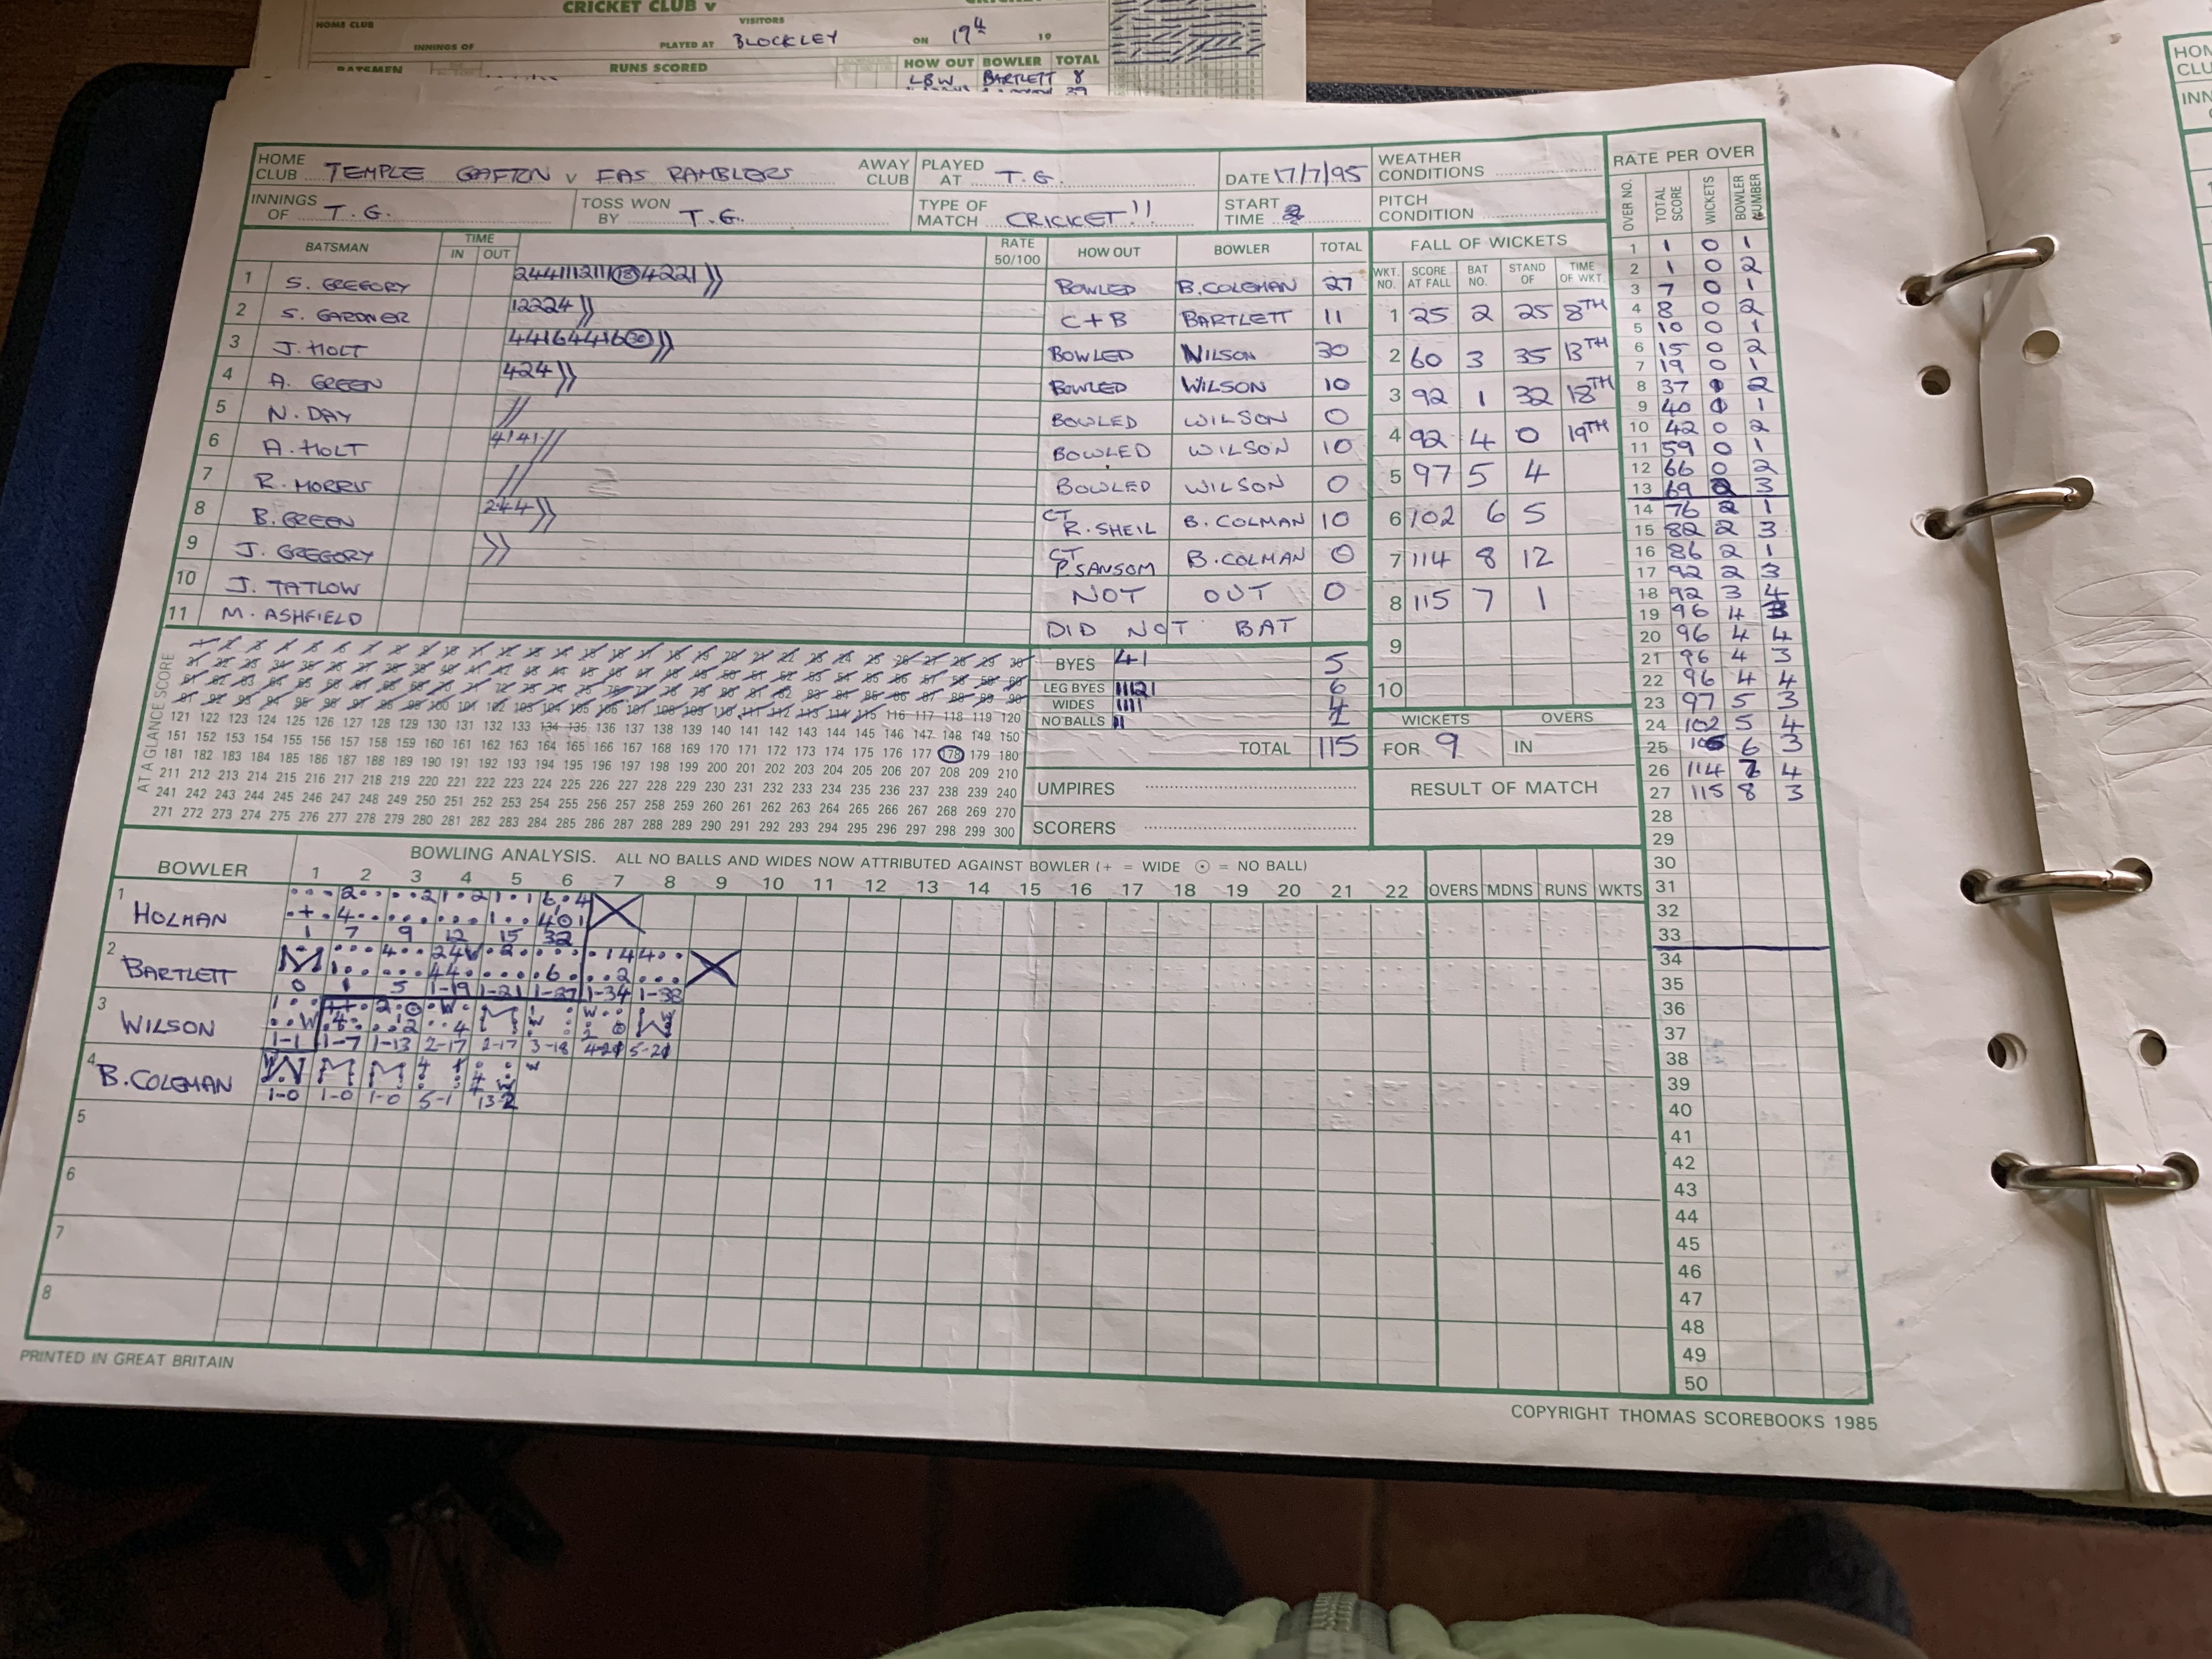 CRICKET CLUB v
HOME CLUB VISITORS
INNINGS OF PLAYED AT BLOCKLEY ON 19th 19
BATSMEN RUNS SCORED HOW OUT BOWLER TOTAL
LBW BARTLETT 8
HOME CLUB TEMPLE GAFTON v FAS RAMBLERS AWAY CLUB PLAYED AT T.G. DATE 17/7/95 WEATHER CONDITIONS
INNINGS OF T.G. TOSS WON BY T.G. TYPE OF MATCH CRICKET!! START TIME 2 PITCH CONDITION
BATSMAN TIME IN OUT RATE 50/100 HOW OUT BOWLER TOTAL
1 S. GREGORY BOWLED B.COLEMAN 27
2 S. GARDNER 12224 C+B BARTLETT 11
3 J. HOLT 44164416 30 BOWLED WILSON 30
4 A. GREEN 424 BOWLED WILSON 10
5 N. DAY BOWLED WILSON 0
6 A. HOLT 4141 BOWLED WILSON 10
7 R. MORRIS BOWLED WILSON 0
8 B. GREEN 244 CT R. SHEIL B. COLMAN 10
9 J. GREGORY CT P. SANSOM B. COLMAN 0
10 J. TATLOW NOT OUT 0
11 M. ASHFIELD DID NOT BAT
FALL OF WICKETS
WKT. NO. SCORE AT FALL BAT NO. STAND OF TIME OF WKT.
1 25 2 25 8TH
2 60 3 35 13TH
3 92 1 32 18TH
4 92 4 0 19TH
5 97 5 4
6 102 6 5
7 114 8 12
8 115 7 1
9
10
WICKETS OVERS
FOR 9 IN
RESULT OF MATCH
BYES 41 5
LEG BYES 11121 6
WIDES 1111 4
NO BALLS 11
TOTAL 115
UMPIRES
SCORERS
AT A GLANCE SCORE
121 122 123 124 125 126 127 128 129 130 131 132 133 134 135 136 137 138 139 140 141 142 143 144 145 146 147 148 149 150
151 152 153 154 155 156 157 158 159 160 161 162 163 164 165 166 167 168 169 170 171 172 173 174 175 176 177 178 179 180
181 182 183 184 185 186 187 188 189 190 191 192 193 194 195 196 197 198 199 200 201 202 203 204 205 206 207 208 209 210
211 212 213 214 215 216 217 218 219 220 221 222 223 224 225 226 227 228 229 230 231 232 233 234 235 236 237 238 239 240
241 242 243 244 245 246 247 248 249 250 251 252 253 254 255 256 257 258 259 260 261 262 263 264 265 266 267 268 269 270
271 272 273 274 275 276 277 278 279 280 281 282 283 284 285 286 287 288 289 290 291 292 293 294 295 296 297 298 299 300
RATE PER OVER
OVER NO. TOTAL SCORE WICKETS BOWLER NUMBER
1 1 0 1
2 1 0 2
3 7 0 1
4 8 0 2
5 10 0 1
6 15 0 2
7 19 0 1
8 37 2
9 40 1
10 42 0 2
11 59 0 1
12 66 0 2
13 69 2 3
14 76 2 1
15 82 2 3
16 86 2 1
17 92 2 3
18 92 3 4
19 96 4 3
20 96 4 4
21 96 4 3
22 96 4 4
23 97 5 3
24 102 5 4
25 6 3
26 114 7 4
27 115 8 3
28
29
30
31
32
33
34
35
36
37
38
39
40
41
42
43
44
45
46
47
48
49
50
BOWLER BOWLING ANALYSIS. ALL NO BALLS AND WIDES NOW ATTRIBUTED AGAINST BOWLER (+ = WIDE ⊙ = NO BALL)
1 2 3 4 5 6 7 8 9 10 11 12 13 14 15 16 17 18 19 20 21 22 OVERS MDNS RUNS WKTS
1 HOLMAN
1 7 9 12 15 32
2 BARTLETT
0 1 5 1-19 1-21 1-27 1-34 1-38
3 WILSON
1-1 1-7 1-13 2-17 2-17 3-18
4 B. COLEMAN
1-0 1-0 1-0 5-1 13-2
5
6
7
8
PRINTED IN GREAT BRITAIN
COPYRIGHT THOMAS SCOREBOOKS 1985